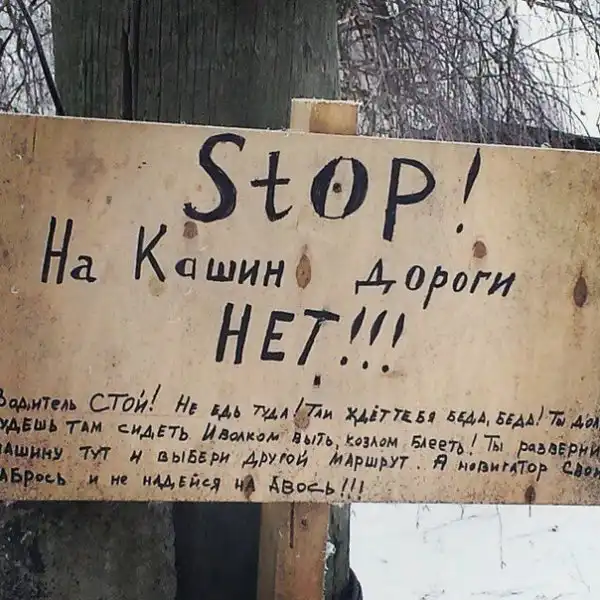 StOP!
На Кашин дороги
НЕТ!!!
Водитель СТОЙ! Не едь туда! Там ждёт тебя беда, беда! Ты дол
удешь там сидеть И волком выть, козлом блееть! Ты разверни
машину тут и выбери другой маршрут. А новигатор свой
аБрось и не надейся на Авось!!!